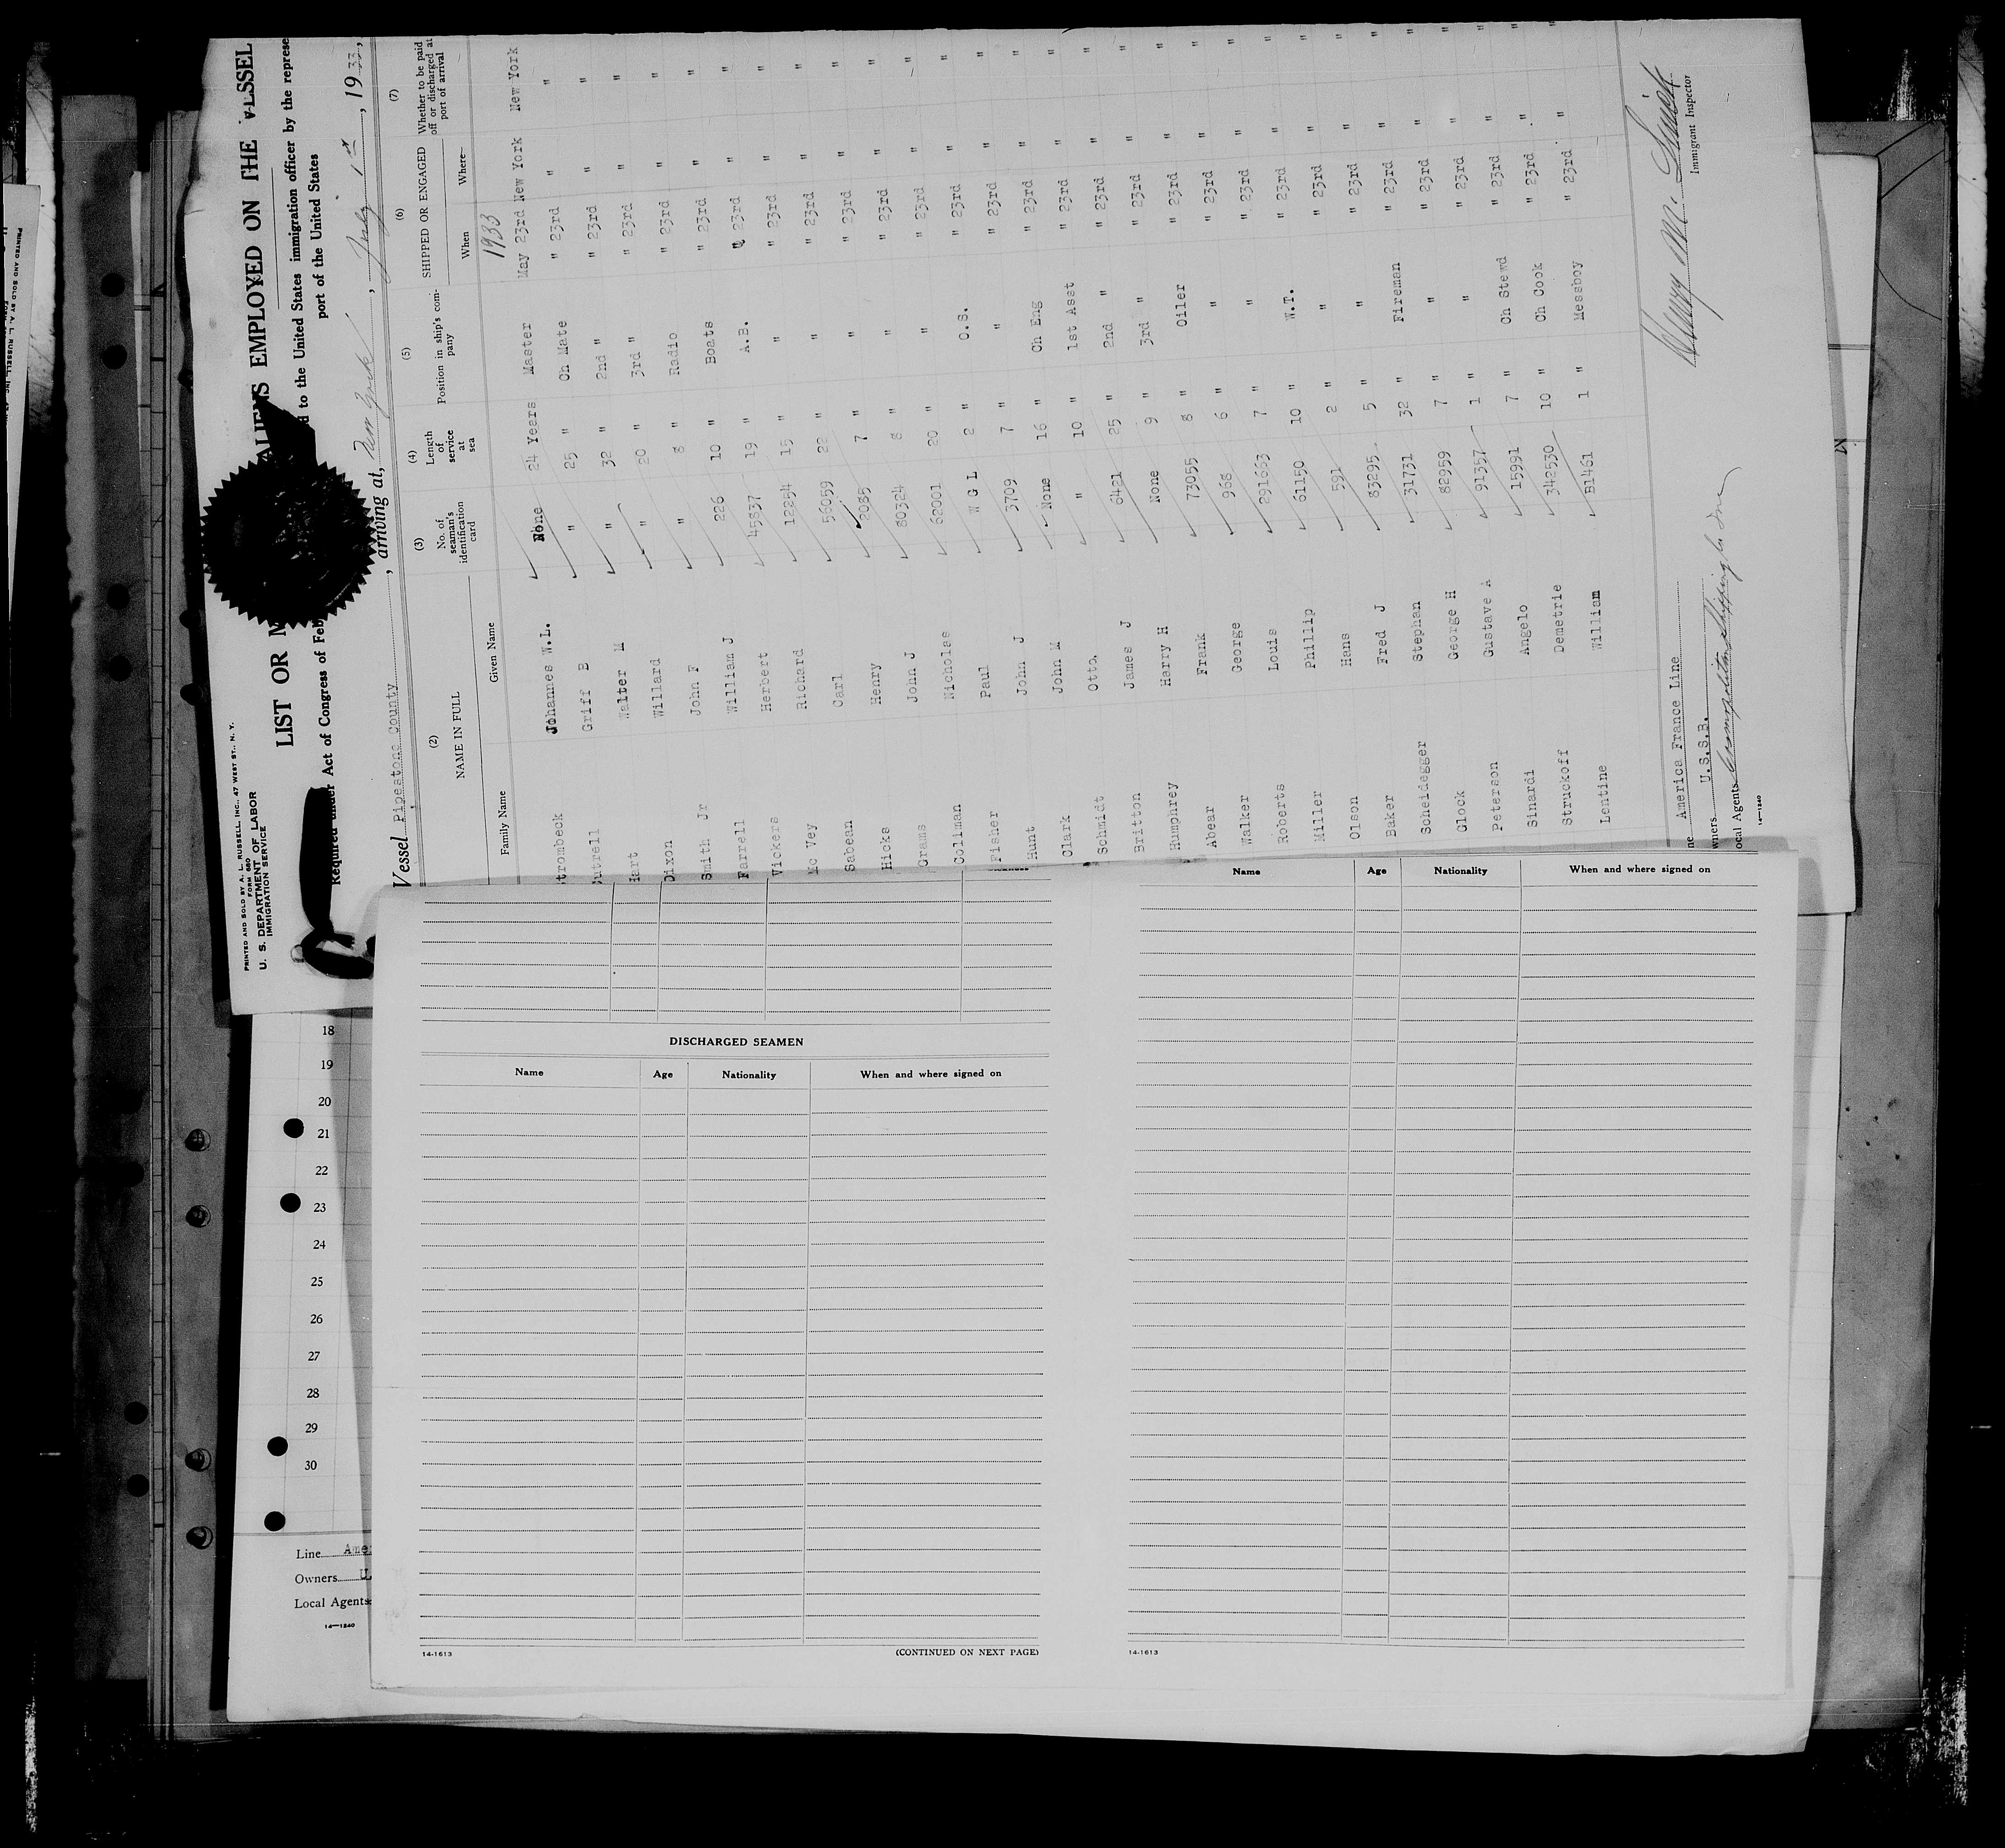 PRINTED AND SOLD BY A. L. RUSSELL, INC., 47 WEST ST., N. Y.
FORM 680
U. S. DEPARTMENT OF LABOR
IMMIGRATION SERVICE
LIST OR
ALIENS EMPLOYED ON THE VESSEL
Required under Act of Congress of Feb
d to the United States immigration officer by the represe
port of the United States
Vessel Pipestone County, arriving at, New York, July 1st, 1933,
(2) (3) (4) (5) (6) (7)
NAME IN FULL
Family Name Given Name
No. of seaman's identification card
Length of service at sea
Position in ship's company
SHIPPED OR ENGAGED
When Where
Whether to be paid off or discharged at port of arrival
1933
trombeck Johannes W.L. None 24 Years Master May 23rd New York New York
utrell Griff B " 25 " Ch Mate " 23rd " "
Hart Walter M " 32 " 2nd " " 23rd " "
Dixon Willard " 20 " 3rd " " 23rd " "
Smith Jr John F " 8 " Radio " 23rd " "
Farrell William J 226 10 " Boats " 23rd " "
Vickers Herbert 45837 19 " A.B. " 23rd " "
Mc Vey Richard 12254 15 " " " 23rd " "
Sabean Carl 56059 22 " " " 23rd " "
Hicks Henry 2085 7 " " " 23rd " "
Grams John J 80324 8 " " " 23rd " "
Collman Nicholas 62001 20 " " " 23rd " "
Fisher Paul W G L 2 " O.S. " 23rd " "
Hunt John J 3709 7 " " " 23rd " "
Clark John M None 16 " Ch Eng " 23rd " "
Schmidt Otto. " 10 " 1st Asst " 23rd " "
Britton James J 6421 25 " 2nd " " 23rd " "
Humphrey Harry H None 9 " 3rd " " 23rd " "
Abear Frank 73055 8 " Oiler " 23rd " "
Walker George 968 6 " " " 23rd " "
Roberts Louis 291663 7 " " " 23rd " "
Miller Phillip 61150 10 " W.T. " 23rd " "
Olson Hans 591 2 " " " 23rd " "
Baker Fred J 83295 5 " " " 23rd " "
Scheidegger Stephan 31731 32 " Fireman " 23rd " "
Glock George H 82959 7 " " " 23rd " "
Peterson Gustave A 91357 1 " " " 23rd " "
Sinardi Angelo 15991 7 " Ch Stewd " 23rd " "
Struckoff Demetrie 342530 10 " Ch Cook " 23rd " "
Lentine William B1461 1 " Messboy " 23rd " "
ne America France Line
wners U.S.S.B.
ocal Agents Cosmopolitan Shipping Co Inc
14—1240
Henry M. Smith
Immigrant Inspector
18
19
20
21
22
23
24
25
26
27
28
29
30
Line Ame
Owners U.
Local Agents
14—1240
DISCHARGED SEAMEN
Name Age Nationality When and where signed on
14-1613 (CONTINUED ON NEXT PAGE)
Name Age Nationality When and where signed on
14-1613